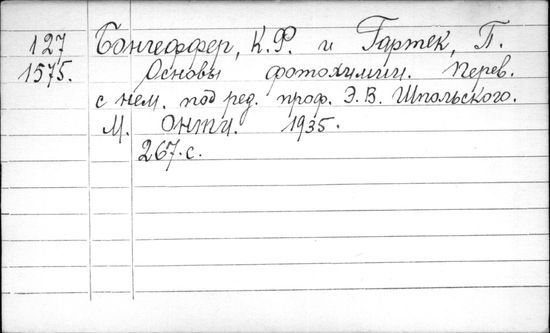 127 Бонгеффер, К.Ф. и Гартек, П.
1575. Основы фотохимии. Перев.
с нем. под ред. проф. Э.В. Шпольского.
М. ОНТИ. 1935.
267.с.